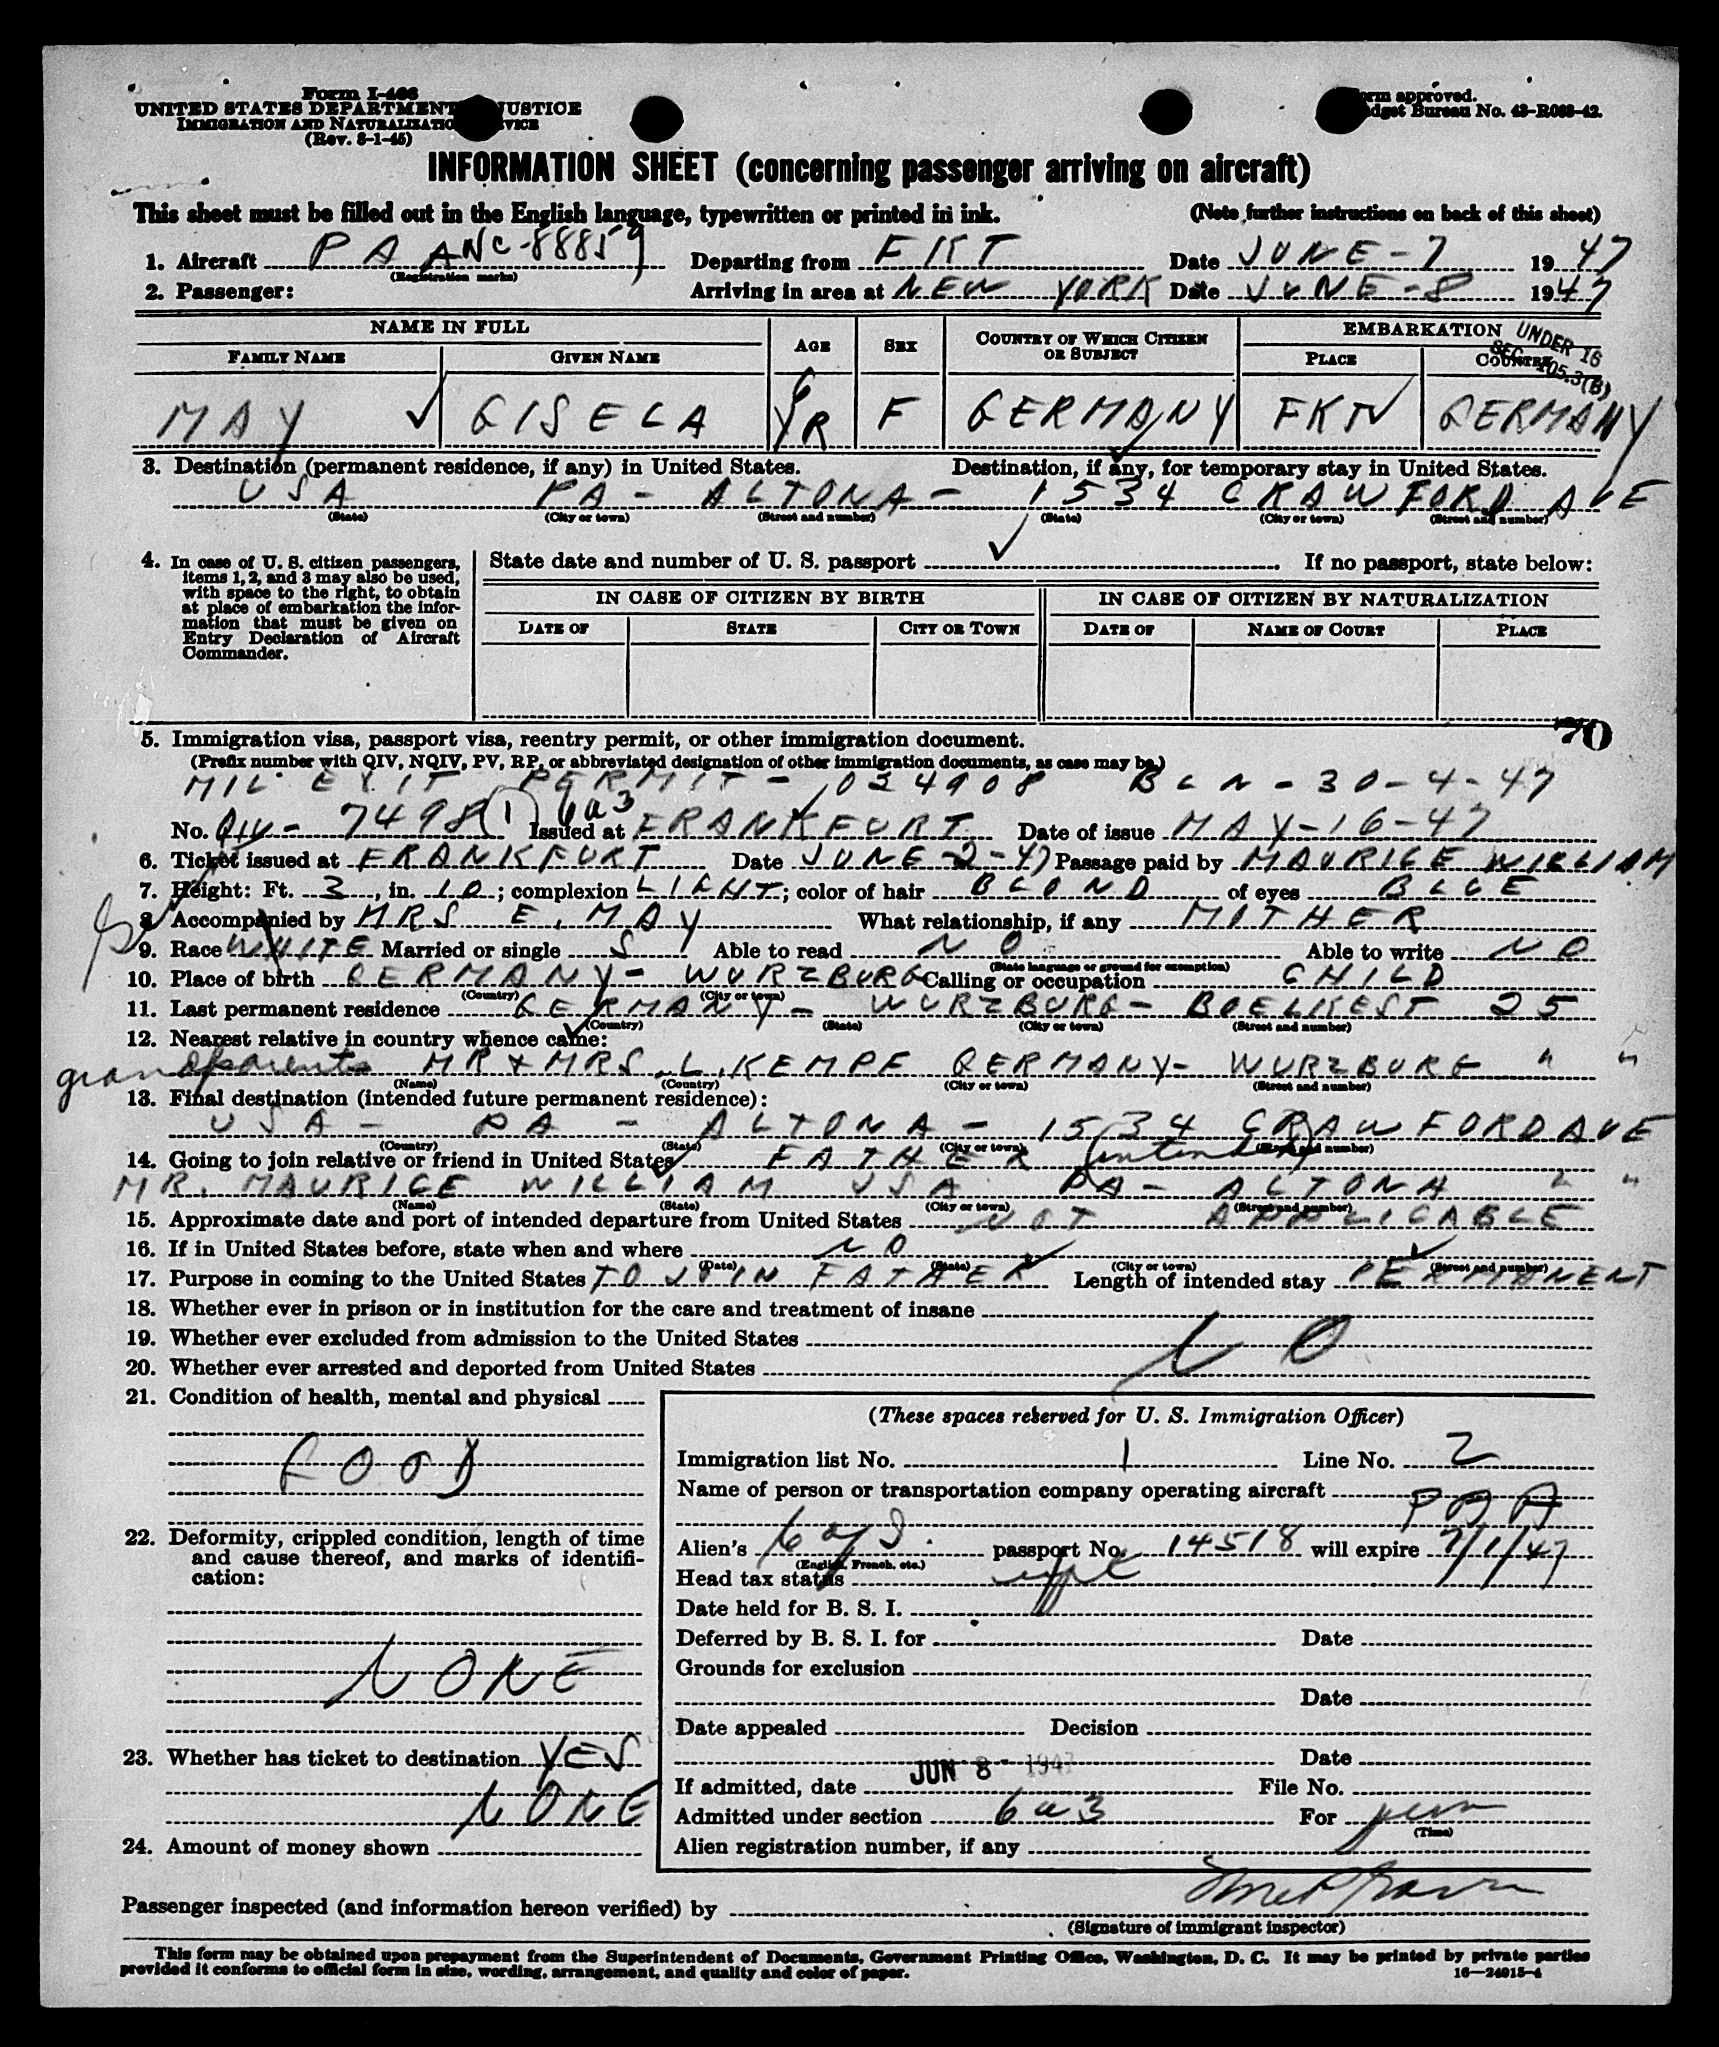 Form I-466
UNITED STATES DEPARTMENT JUSTICE
IMMIGRATION AND NATURALIZATION SERVICE
(Rev. 8-1-45)
Form approved.
Budget Bureau No. 43-R083-42.
INFORMATION SHEET (concerning passenger arriving on aircraft)
This sheet must be filled out in the English language, typewritten or printed in ink.
(Note further instructions on back of this sheet)
1. Aircraft PAA NC-88859 Departing from FKT Date JUNE-7 1947
(Registration marks)
2. Passenger: Arriving in area at NEW YORK Date JUNE-8 1947
NAME IN FULL AGE SEX COUNTRY OF WHICH CITIZEN OR SUBJECT EMBARKATION
UNDER 16
SEC. 105.3(B)
FAMILY NAME GIVEN NAME PLACE COUNTRY
MAY GISELA 6 YR F GERMANY FKT GERMANY
3. Destination (permanent residence, if any) in United States. Destination, if any, for temporary stay in United States.
USA PA - ALTONA - 1534 CRAWFORD AVE
(State) (City or town) (Street and number) (State) (City or town) (Street and number)
4. In case of U. S. citizen passengers, items 1, 2, and 3 may also be used, with space to the right, to obtain at place of embarkation the information that must be given on Entry Declaration of Aircraft Commander.
State date and number of U. S. passport If no passport, state below:
IN CASE OF CITIZEN BY BIRTH IN CASE OF CITIZEN BY NATURALIZATION
DATE OF STATE CITY OR TOWN DATE OF NAME OF COURT PLACE
70
5. Immigration visa, passport visa, reentry permit, or other immigration document.
(Prefix number with QIV, NQIV, PV, RP, or abbreviated designation of other immigration documents, as case may be.)
MIL. EXIT PERMIT - 024908 BLN - 30-4-47
No. QIV- 7498 (1) 6a3 Issued at FRANKFURT Date of issue MAY-16-47
6. Ticket issued at FRANKFURT Date JUNE-2-47 Passage paid by MAURICE WILLIAM
7. Height: Ft. 3, in. 10; complexion LIGHT; color of hair BLOND of eyes BLUE
8. Accompanied by MRS E. MAY What relationship, if any MOTHER
9. Race WHITE Married or single S Able to read NO Able to write NO
(State language or ground for exemption)
10. Place of birth GERMANY - WURZBURG Calling or occupation CHILD
(Country) (City or town)
11. Last permanent residence GERMANY - WURZBURG - BOELKEST 25
(Country) (State) (City or town) (Street and number)
12. Nearest relative in country whence came:
grandparents MR & MRS. L. KEMPF GERMANY - WURZBURG " "
(Name) (Country) (City or town) (Street and number)
13. Final destination (intended future permanent residence):
USA - PA - ALTONA - 1534 CRAWFORD AVE
(Country) (State) (City or town) (Street and number)
14. Going to join relative or friend in United States FATHER (intended)
MR. MAURICE WILLIAM USA PA - ALTONA " "
(Name) (State) (City or town) (Street and number)
15. Approximate date and port of intended departure from United States NOT APPLICABLE
16. If in United States before, state when and where NO
(Date) (State) (City or town) (Street and number)
17. Purpose in coming to the United States TO JOIN FATHER Length of intended stay PERMANENT
18. Whether ever in prison or in institution for the care and treatment of insane
19. Whether ever excluded from admission to the United States NO
20. Whether ever arrested and deported from United States
21. Condition of health, mental and physical
GOOD
22. Deformity, crippled condition, length of time and cause thereof, and marks of identification:
NONE
23. Whether has ticket to destination YES
NONE
24. Amount of money shown
(These spaces reserved for U. S. Immigration Officer)
Immigration list No. 1 Line No. 2
Name of person or transportation company operating aircraft PAA
Alien's passport No. 14518 will expire 7/1/47
(English, French, etc.)
Head tax status
Date held for B. S. I.
Deferred by B. S. I. for Date
Grounds for exclusion
Date
Date appealed Decision
Date
If admitted, date JUN 8 - 1947 File No.
Admitted under section 6a3 For perm
(Time)
Alien registration number, if any
Passenger inspected (and information hereon verified) by
(Signature of immigrant inspector)
This form may be obtained upon prepayment from the Superintendent of Documents, Government Printing Office, Washington, D. C. It may be printed by private parties
provided it conforms to official form in size, wording, arrangement, and quality and color of paper.
16—24915-4